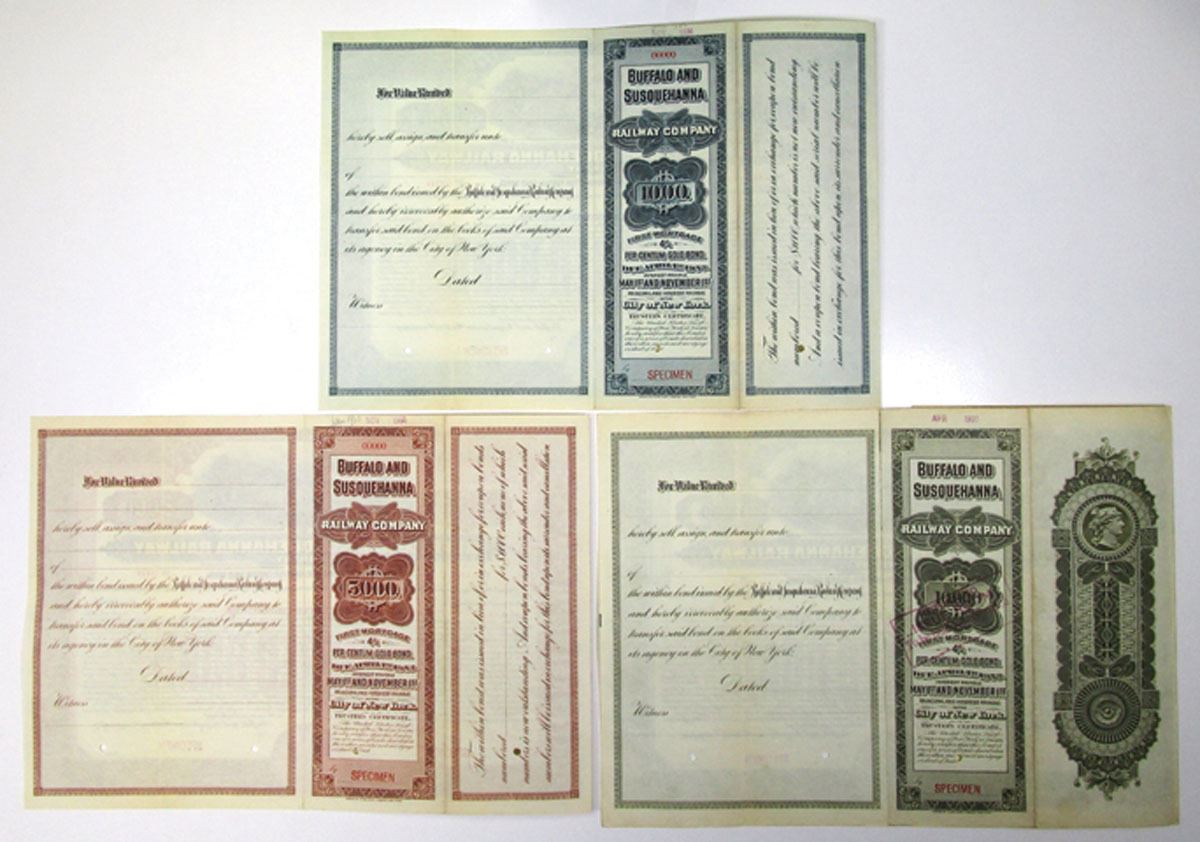 For Value Received
hereby sell, assign, and transfer unto
of
the within bond issued by the Buffalo and Susquehanna Railway Company
and hereby irrevocably authorize said Company to
transfer said bond on the books of said Company at
its agency in the City of New York.
Dated
Witness
00000
BUFFALO AND
SUSQUEHANNA
RAILWAY COMPANY
1000
FIRST MORTGAGE
4½
PER CENTUM GOLD BOND.
DUE APRIL 1ST
INTEREST PAYABLE
MAY 1ST AND NOVEMBER 1ST
PRINCIPAL AND INTEREST PAYABLE
City of New York.
TRUSTEE'S CERTIFICATE.
By
SPECIMEN
The within bond was issued in lieu of or in exchange for coupon bond
numbered for $1000, which number is not now outstanding
And a coupon bond bearing the above said serial number will be
issued in exchange for this bond upon its surrender and cancellation
For Value Received
hereby sell, assign, and transfer unto
of
the within bond issued by the Buffalo and Susquehanna Railway Company
and hereby irrevocably authorize said Company to
transfer said bond on the books of said Company at
its agency in the City of New York.
Dated
Witness
00000
BUFFALO AND
SUSQUEHANNA
RAILWAY COMPANY
5000
FIRST MORTGAGE
4½
PER CENTUM GOLD BOND.
DUE APRIL 1ST
INTEREST PAYABLE
MAY 1ST AND NOVEMBER 1ST
PRINCIPAL AND INTEREST PAYABLE
City of New York.
TRUSTEE'S CERTIFICATE.
By
SPECIMEN
The within bond was issued in lieu of or in exchange for coupon bonds
numbered for $1000 each, no one of which
numbers is now outstanding. And coupon bonds bearing the above said serial
numbers will be issued in exchange for this bond upon its surrender and cancellation
For Value Received
hereby sell, assign, and transfer unto
of
the within bond issued by the Buffalo and Susquehanna Railway Company
and hereby irrevocably authorize said Company to
transfer said bond on the books of said Company at
its agency in the City of New York.
Dated
Witness
APR
BUFFALO AND
SUSQUEHANNA
RAILWAY COMPANY
FIRST MORTGAGE
4½
PER CENTUM GOLD BOND.
DUE APRIL 1ST
INTEREST PAYABLE
MAY 1ST AND NOVEMBER 1ST
PRINCIPAL AND INTEREST PAYABLE
City of New York.
TRUSTEE'S CERTIFICATE.
By
SPECIMEN